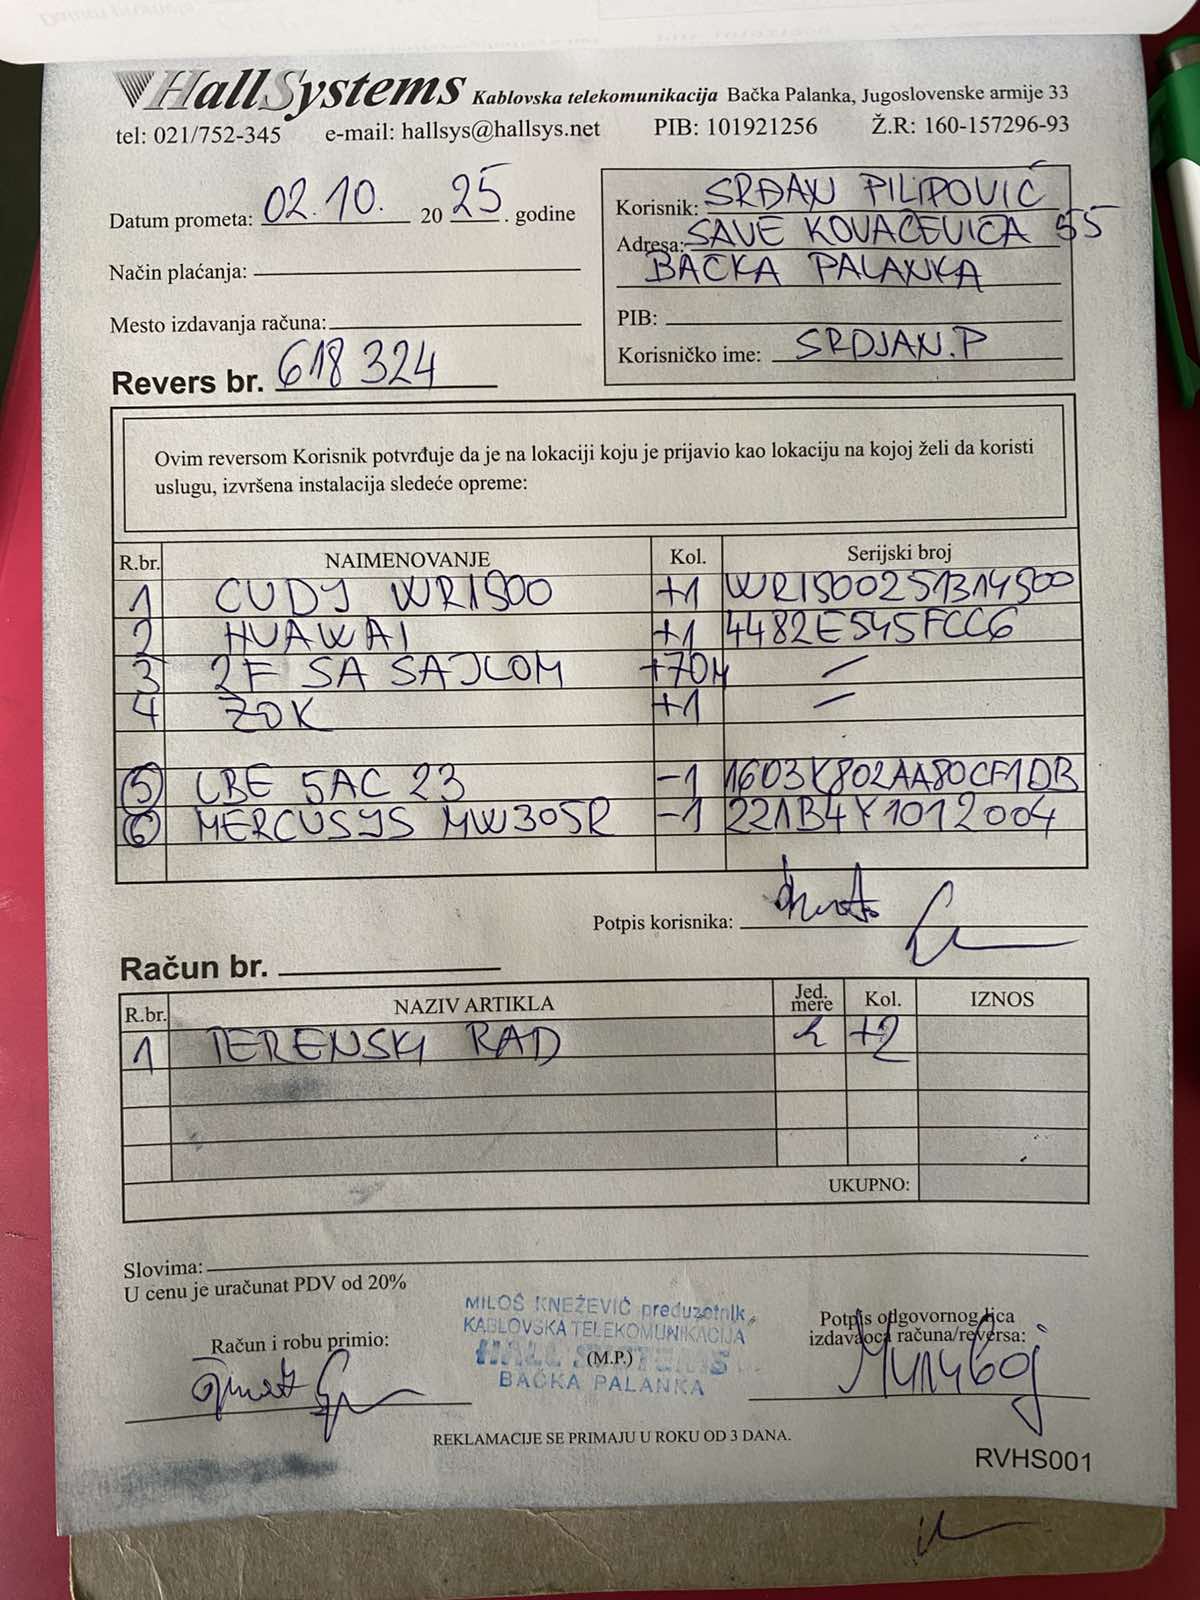 HallSystems Kablovska telekomunikacija Bačka Palanka, Jugoslovenske armije 33
tel: 021/752-345 e-mail: hallsys@hallsys.net PIB: 101921256 Ž.R: 160-157296-93
Datum prometa: 02.10. 20 25. godine
Način plaćanja:
Mesto izdavanja računa:
Revers br. 618324
Korisnik: SRĐAN PILIPOVIĆ
Adresa: SAVE KOVAČEVIĆA 55
BAČKA PALANKA
PIB:
Korisničko ime: SRDJAN.P
Ovim reversom Korisnik potvrđuje da je na lokaciji koju je prijavio kao lokaciju na kojoj želi da koristi
uslugu, izvršena instalacija sledeće opreme:
R.br. NAIMENOVANJE Kol. Serijski broj
1 CUDY WR1500 +1 WR1500251314500
2 HUAWAI +1 4482E545FCC6
3 2F SA SAJLOM +70M /
4 ZOK +1 /
5 LBE 5AC 23 -1 1603K802AA80CF1DB
6 MERCUSYS MW305R -1 221B4Y1012004
Potpis korisnika:
Račun br.
R.br. NAZIV ARTIKLA Jed. mere Kol. IZNOS
1 TERENSKI RAD h +2
UKUPNO:
Slovima:
U cenu je uračunat PDV od 20%
Račun i robu primio:
MILOŠ KNEŽEVIĆ preduzetnik,
KABLOVSKA TELEKOMUNIKACIJA
HALL SYSTEMS
(M.P.)
BAČKA PALANKA
Potpis odgovornog lica
izdavaoca računa/reversa:
REKLAMACIJE SE PRIMAJU U ROKU OD 3 DANA.
RVHS001